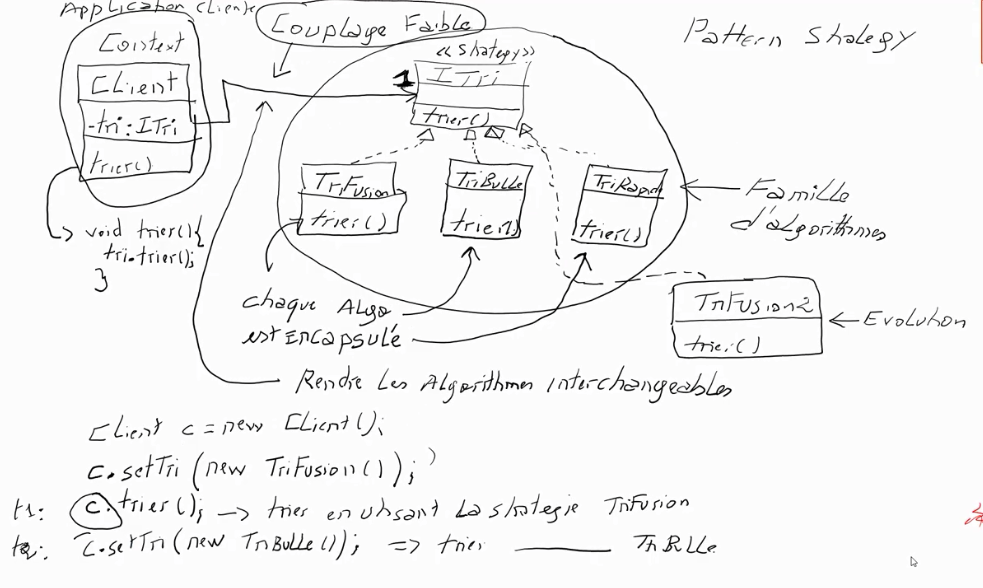 Application cliente
Couplage Faible
Pattern Strategy
Context
CLient
-tri:ITri
trier()
<<Strategy>>
1
ITri
trier()
TriFusion
trier()
TriBulle
trier()
TriRapide
trier()
Famille
d'algorithmes
void trier(){
tri.trier();
}
chaque Algo
est ENCapsulé
TriFusion2
trier()
Evolution
Rendre Les Algorithmes interchangeables
CLient c = new CLient();
c.setTri(new TriFusion());
t1: c.trier(); -> trier en utilisant La strategie TriFusion
t2: c.setTri(new TriBulle()); => trier ——— TriBulle